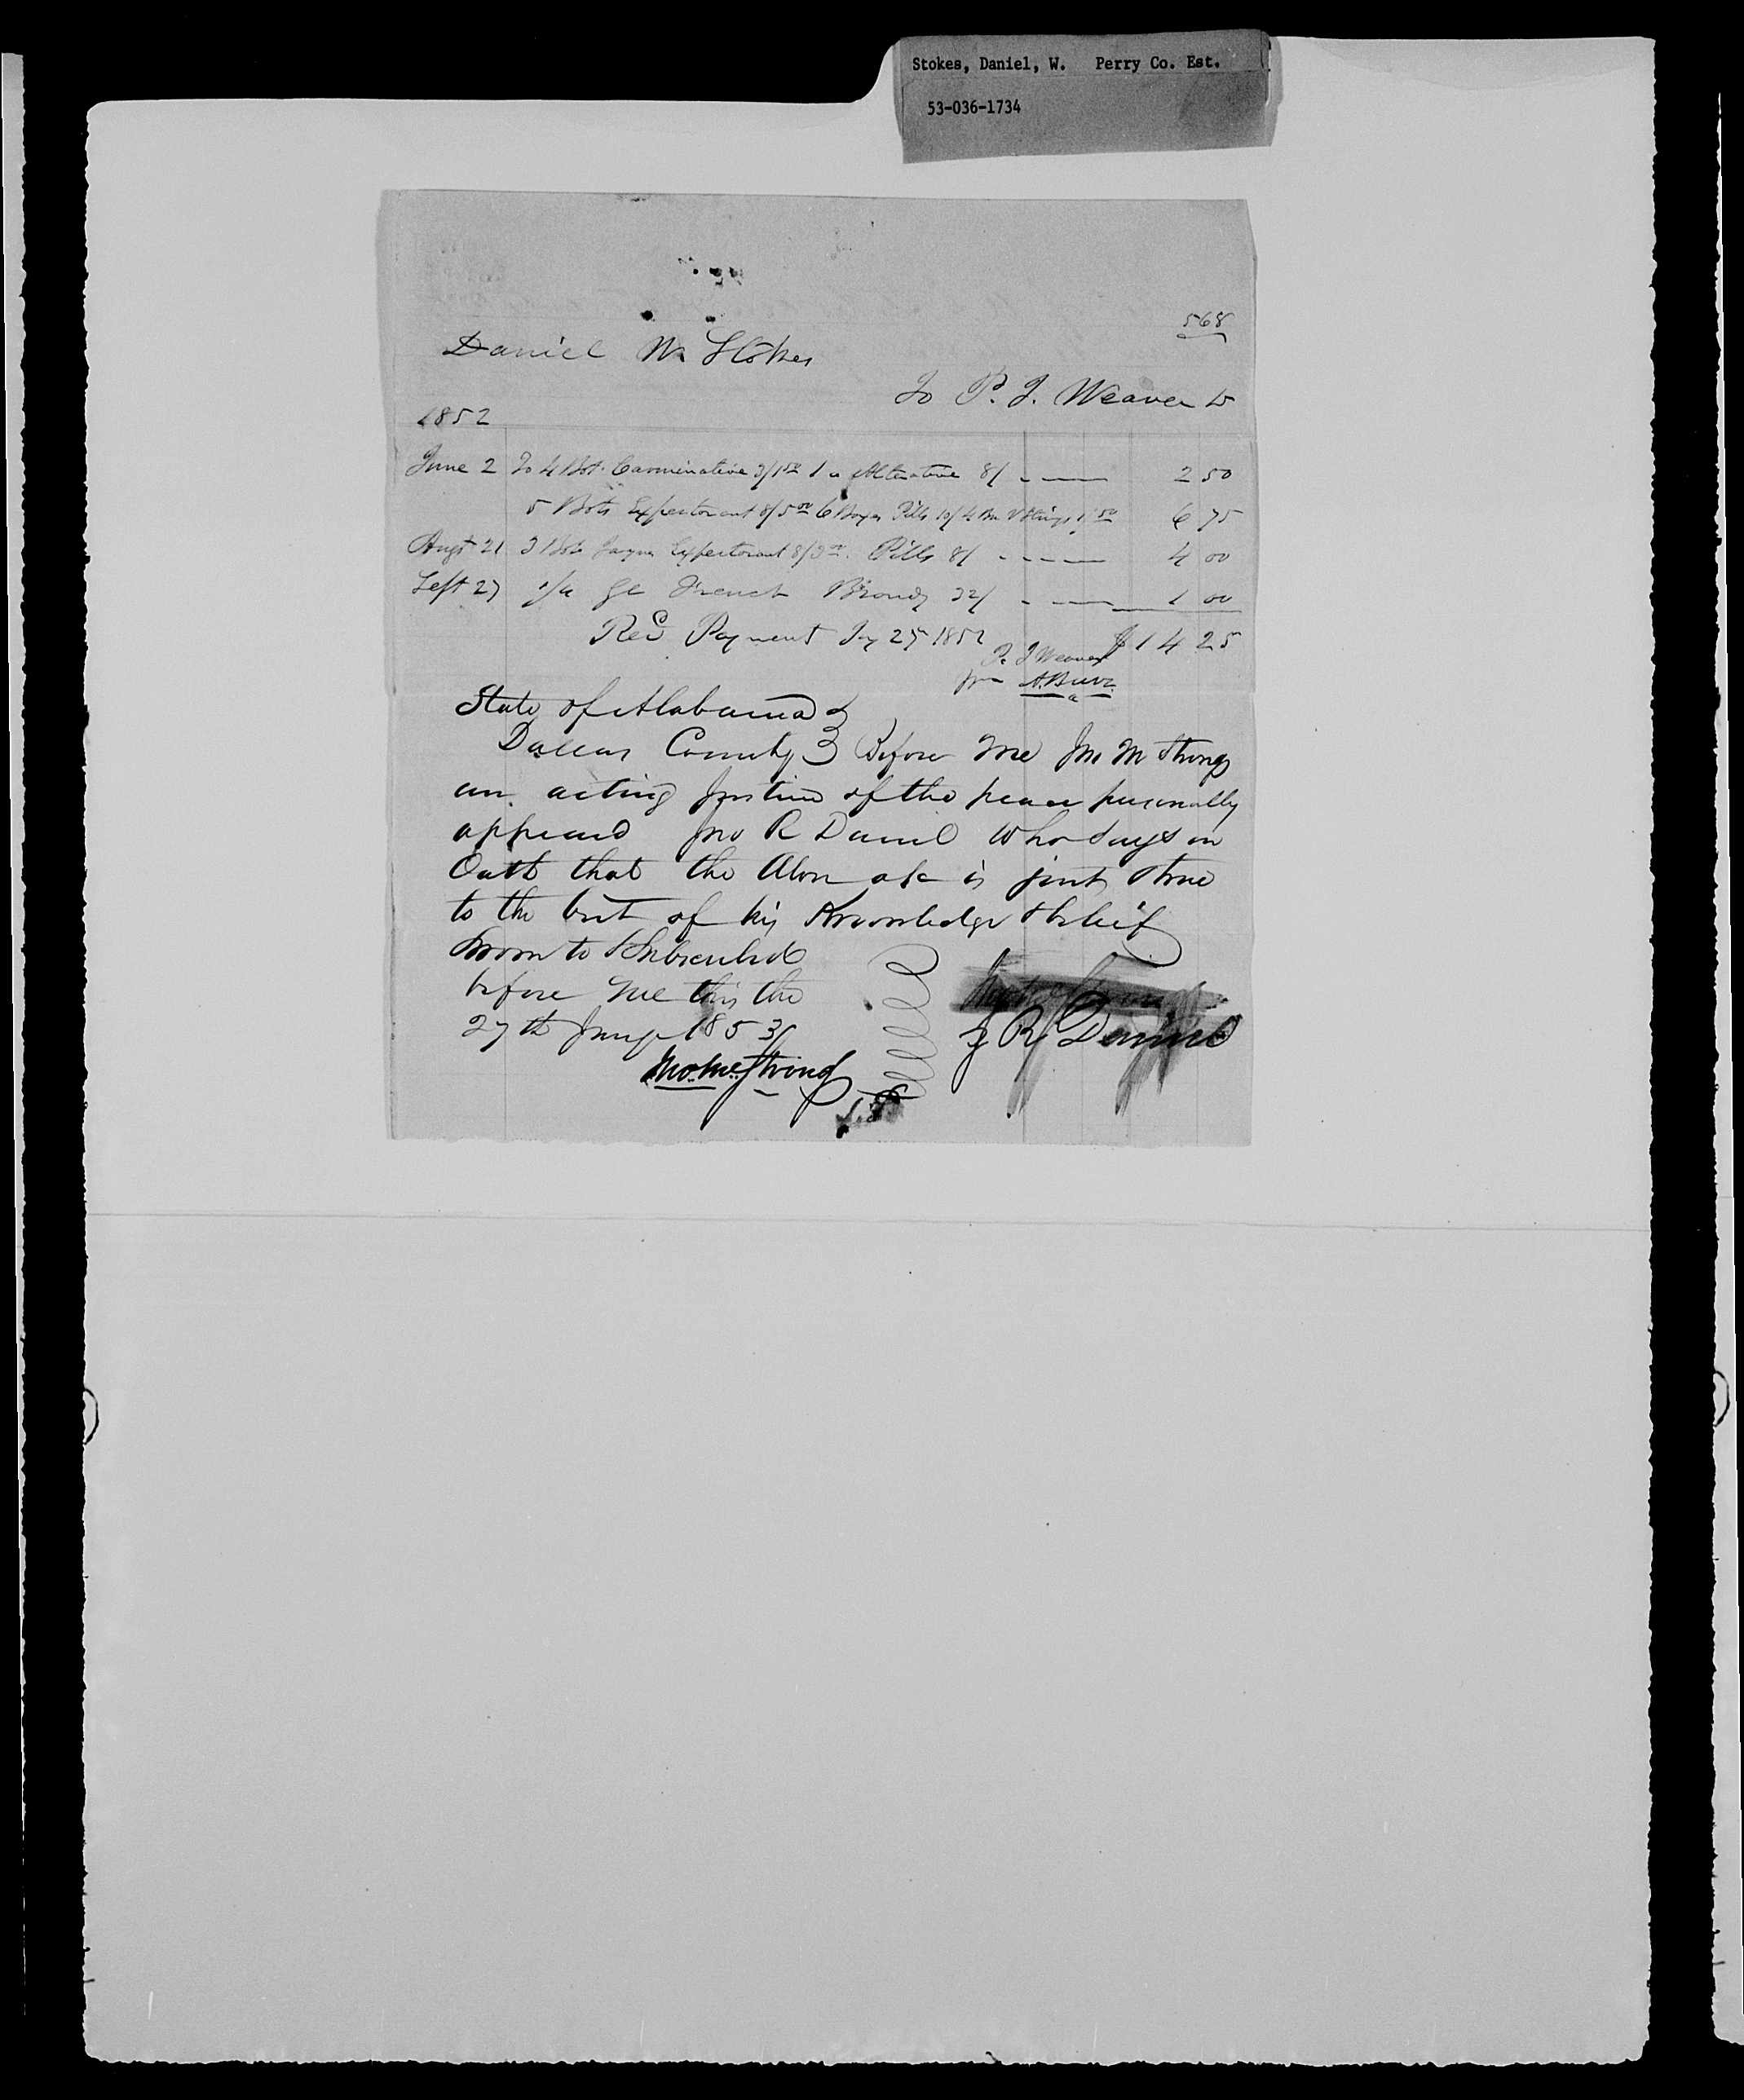 Stokes, Daniel, W. Perry Co. Est.
53-036-1734
568
Daniel W Stokes
To P. J. Weaver Dr
1852
June 2 To 4 Bot. Carminative 3/1 50 1 " Alterative 8/ 2 50
5 Bots Expectorant 8/5 00 6 Boxes Pills 10/ 4 1 50 6 75
Augt 21 3 Bots Jaynes Expectorant 8/3 00. Pills 8/ 4 00
Sept 27 1/4 Gl French Brandy 32/ 1 00
Recd Payment Jay 25 1852 $14 25
P. J Weaver
State of Alabama
Dallas County Before me Jno M Strong
an acting Justice of the peace personally
appeard Jno R Daniel Who Says on
Oath that the Above a/c is just & true
to the best of his Knowledge & belief
Sworn to & Subscribed
before me this the
27th Jany 1853
J R Daniel
Jno. M. Strong
J.P.